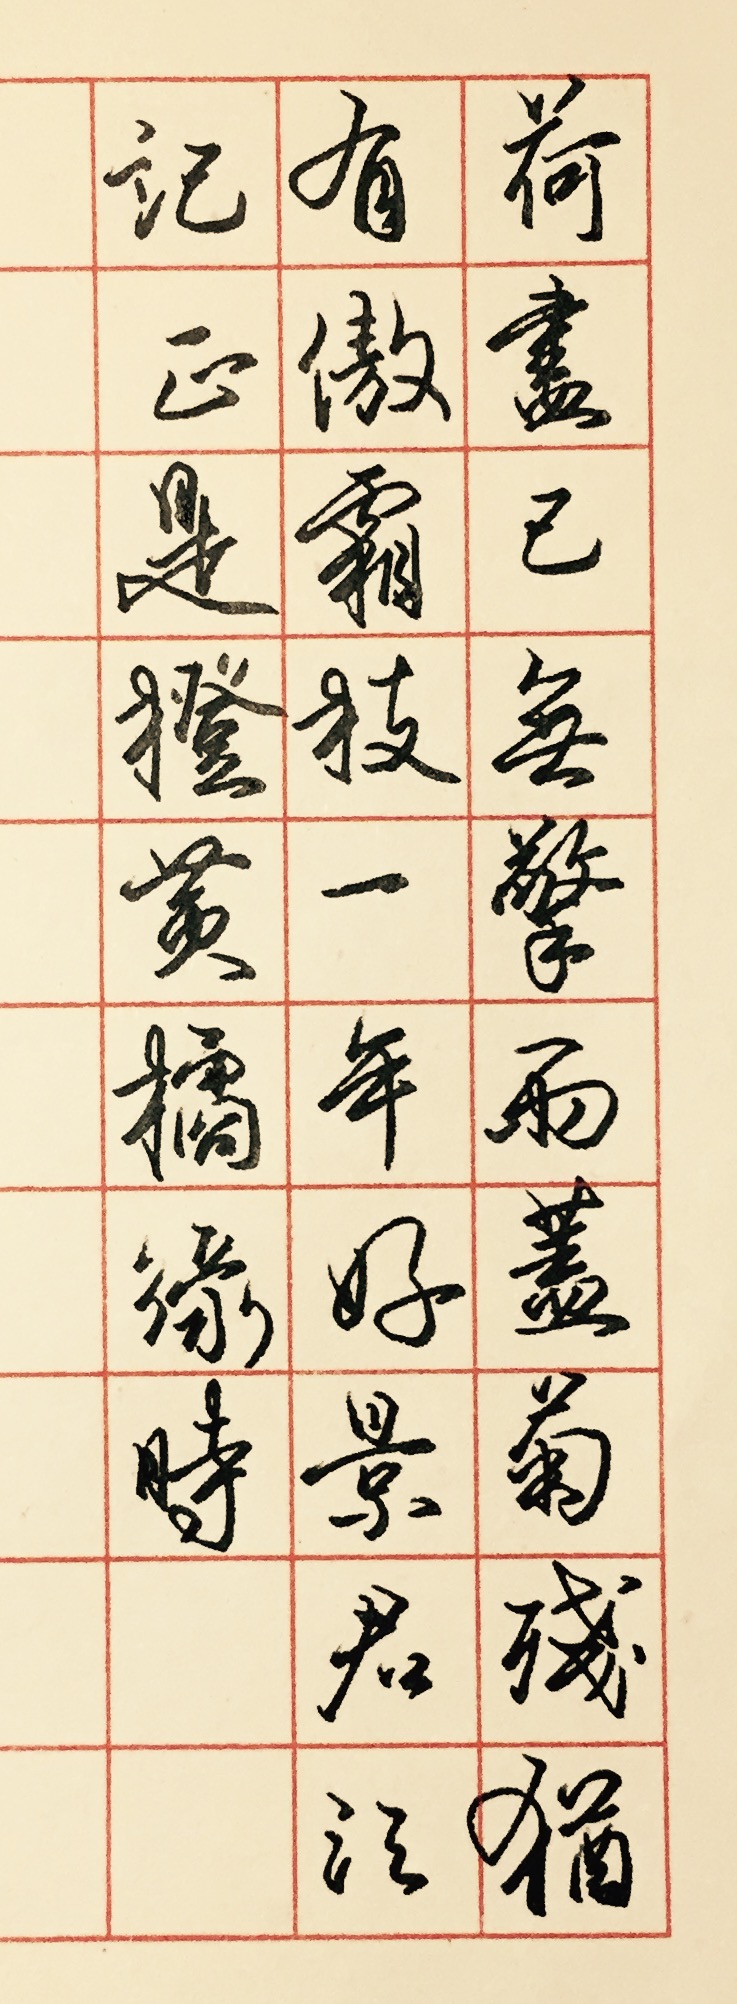 荷盡已無擎雨蓋菊殘猶
有傲霜枝一年好景君須
記正是橙黃橘綠時